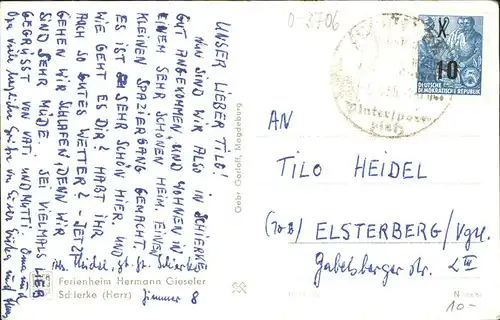 UNSER LIEBER TILO!
NUN SIND WIR ALSO IN SCHIERKE
GUT ANGEKOMMEN UND WOHNEN IN
EINEM SEHR SCHÖNEN HEIM. EINEN
KLEINEN SPAZIERGANG GEMACHT.
ES IST SEHR SCHÖN HIER. UND
WIE GEHT ES DIR? HABT IHR
AUCH SO GUTES WETTER? - JETZT
GEHEN WIR SCHLAFEN, DENN WIR
SIND SEHR MÜDE. SEI VIELMALS LIEB
GEGRÜSST VON VATI UND MUTTI.
Heidel, Schierke
Ferienheim Hermann Gieseler
Schierke (Harz) Zimmer 8
Gebr. Garloff, Magdeburg
0-3706
10
DEUTSCHE
DEMOKRATISCHE REPUBLIK
Wintersport-
platz
AN
TILO HEIDEL
(10B) ELSTERBERG/Vgtl.
Gabelsberger str. 2 III
10.-